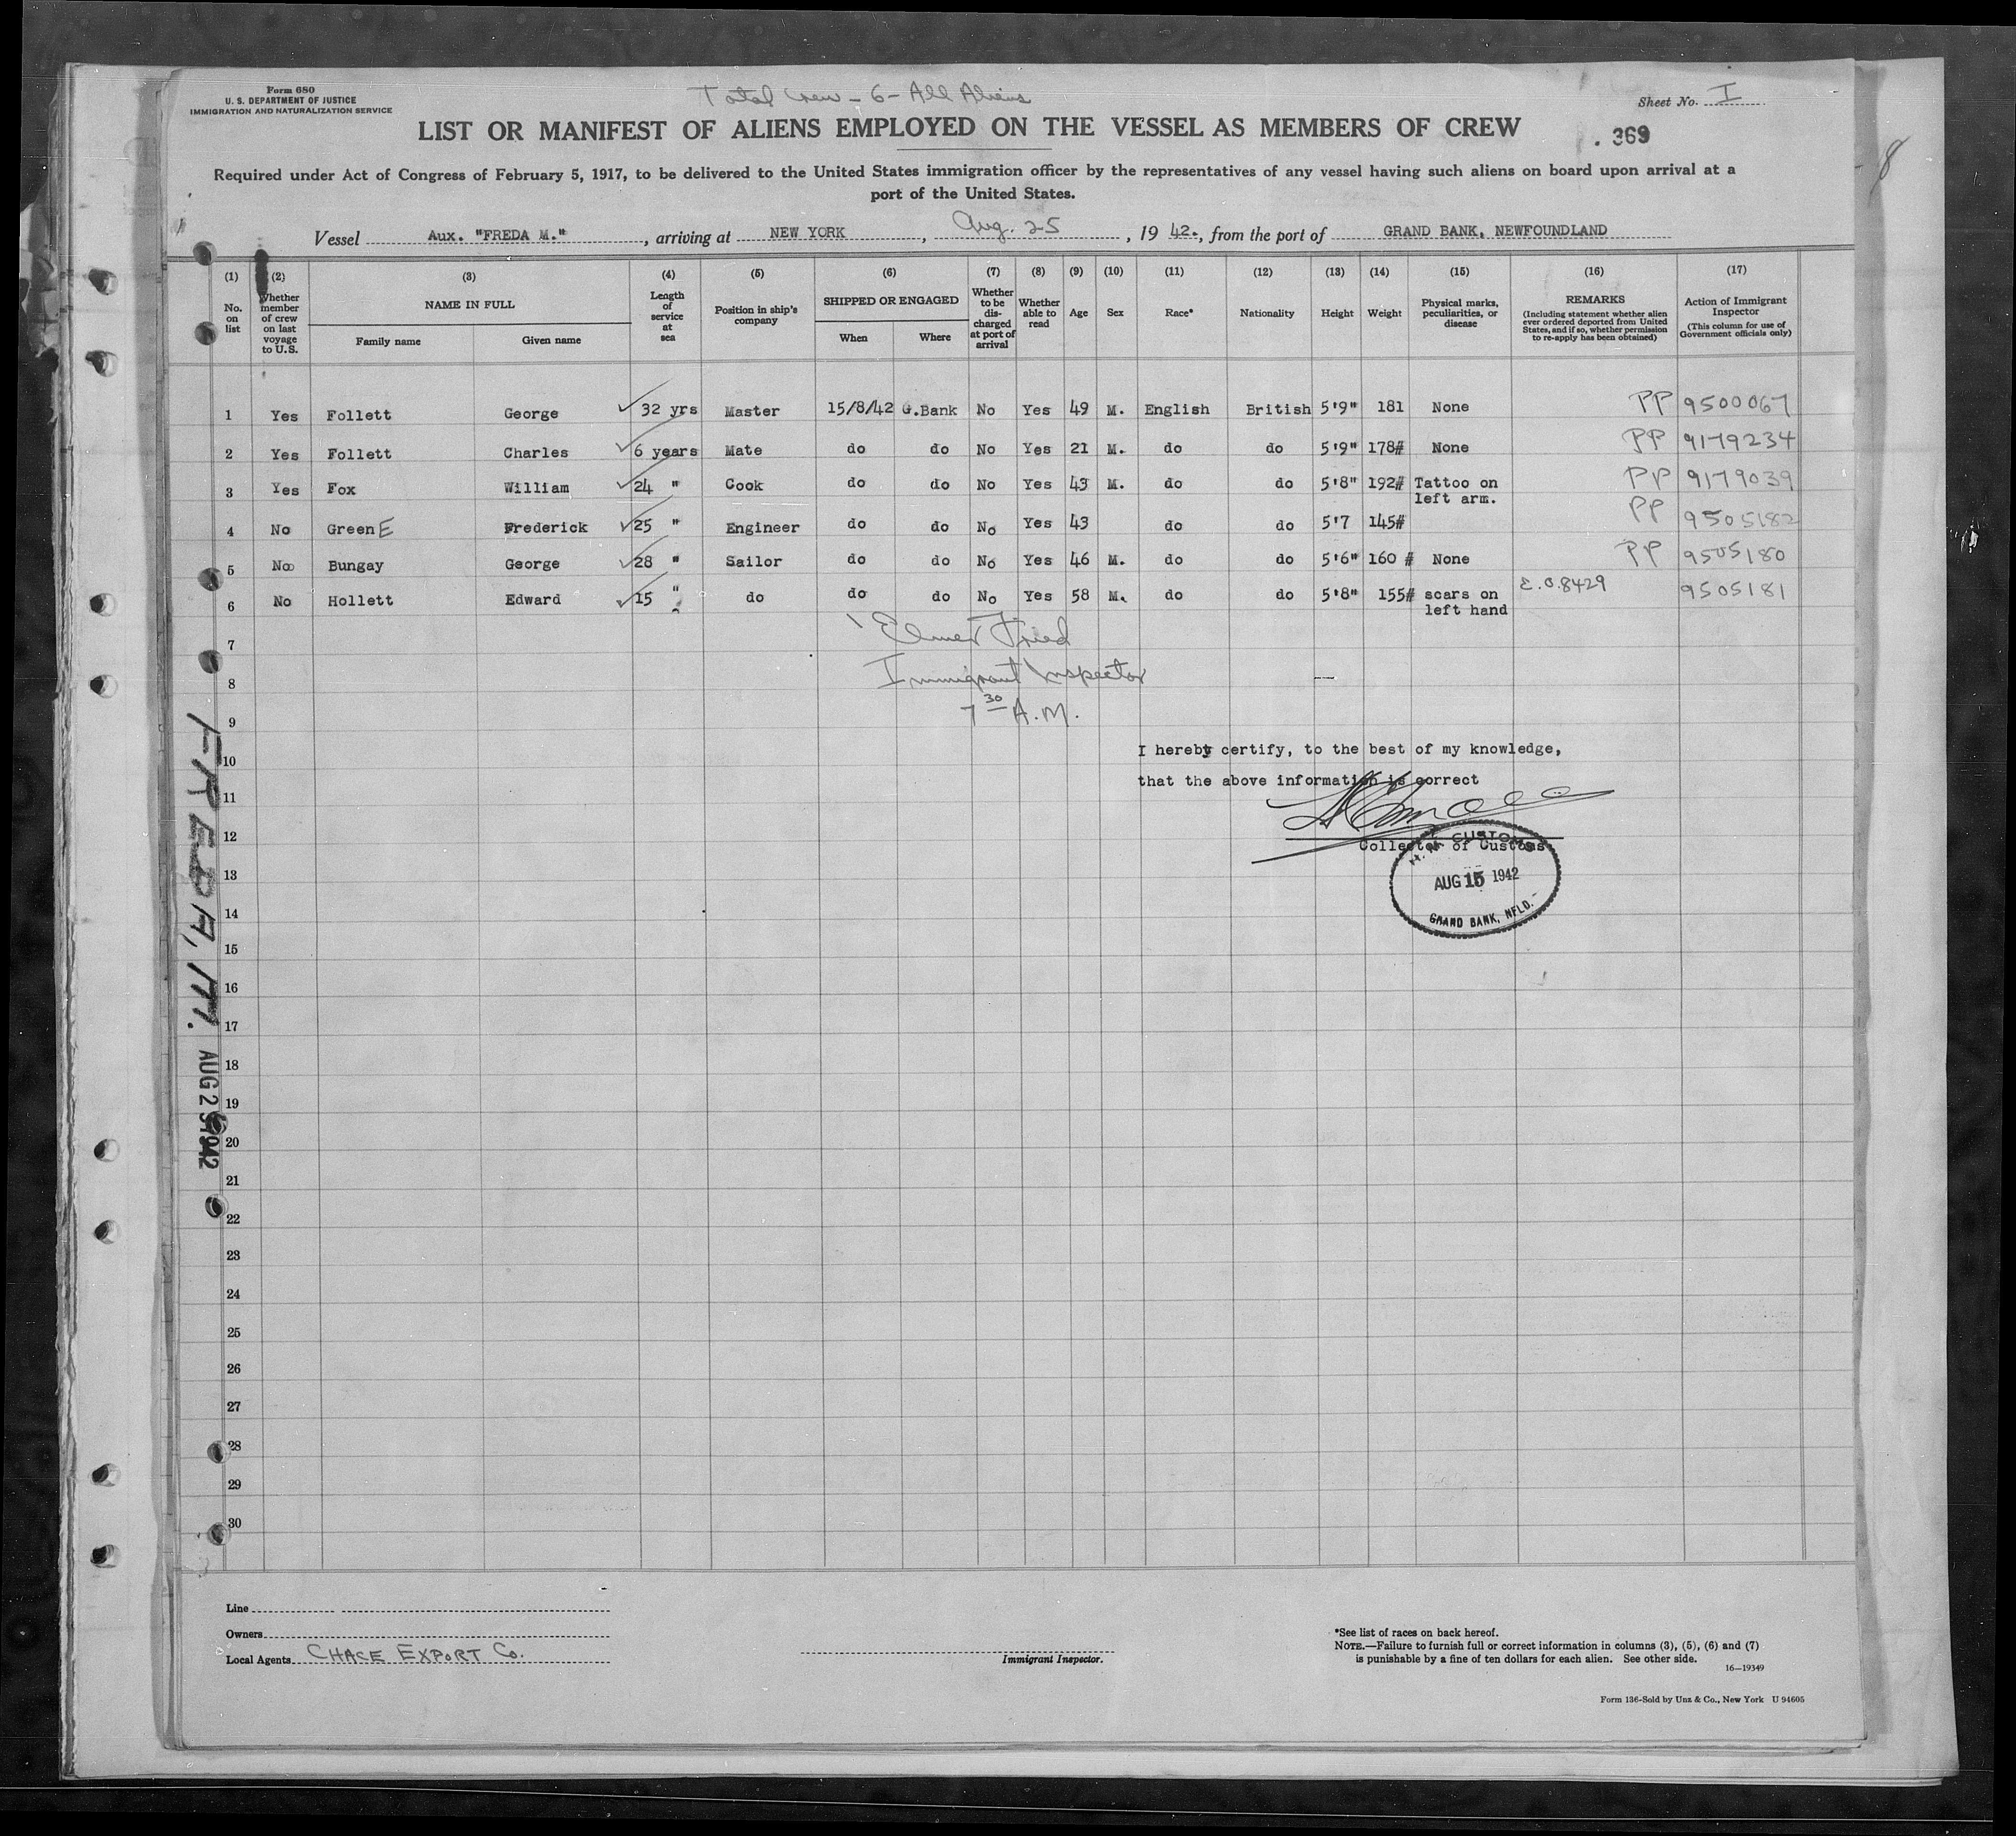 Form 680
U. S. DEPARTMENT OF JUSTICE
IMMIGRATION AND NATURALIZATION SERVICE
Total Crew - 6 - All Aliens
Sheet No. I
LIST OR MANIFEST OF ALIENS EMPLOYED ON THE VESSEL AS MEMBERS OF CREW
. 369
8
Required under Act of Congress of February 5, 1917, to be delivered to the United States immigration officer by the representatives of any vessel having such aliens on board upon arrival at a
port of the United States.
Vessel Aux. "FREDA M.", arriving at NEW YORK, Aug. 25, 19 42., from the port of GRAND BANK, NEWFOUNDLAND
(1) No. on list
(2) Whether member of crew on last voyage to U.S.
(3) NAME IN FULL
Family name Given name
(4) Length of service at sea
(5) Position in ship's company
(6) SHIPPED OR ENGAGED
When Where
(7) Whether to be discharged at port of arrival
(8) Whether able to read
(9) Age
(10) Sex
(11) Race*
(12) Nationality
(13) Height
(14) Weight
(15) Physical marks, peculiarities, or disease
(16) REMARKS
(Including statement whether alien ever ordered deported from United States, and if so, whether permission to re-apply has been obtained)
(17) Action of Immigrant Inspector
(This column for use of Government officials only)
1 Yes Follett George 32 yrs Master 15/8/42 G.Bank No Yes 49 M. English British 5'9" 181 None PP 9500067
2 Yes Follett Charles 6 years Mate do do No Yes 21 M. do do 5'9" 178# None PP 9179234
3 Yes Fox William 24 " Cook do do No Yes 43 M. do do 5'8" 192# Tattoo on left arm. PP 9179039
4 No GreenE Frederick 25 " Engineer do do No Yes 43 do do 5'7 145# PP 9505182
5 No Bungay George 28 " Sailor do do No Yes 46 M. do do 5'6" 160 # None PP 9505180
6 No Hollett Edward 15 " do do do No Yes 58 M. do do 5'8" 155# scars on left hand E.O.8429 9505181
7
Elmer Fried
8
Immigrant Inspector
9
7 30 A.M.
10
I hereby certify, to the best of my knowledge,
that the above information is correct
11
12
Collector of Customs
H. M. CUSTOMS
AUG 15 1942
GRAND BANK, NFLD.
13
14
15
16
17
18
19
20
21
22
23
24
25
26
27
28
29
30
FREDA, M.
AUG 25 1942
Line
Owners
Local Agents CHACE EXPORT Co.
Immigrant Inspector.
*See list of races on back hereof.
NOTE.—Failure to furnish full or correct information in columns (3), (5), (6) and (7)
is punishable by a fine of ten dollars for each alien. See other side.
16—19349
Form 136-Sold by Unz & Co., New York U 94605